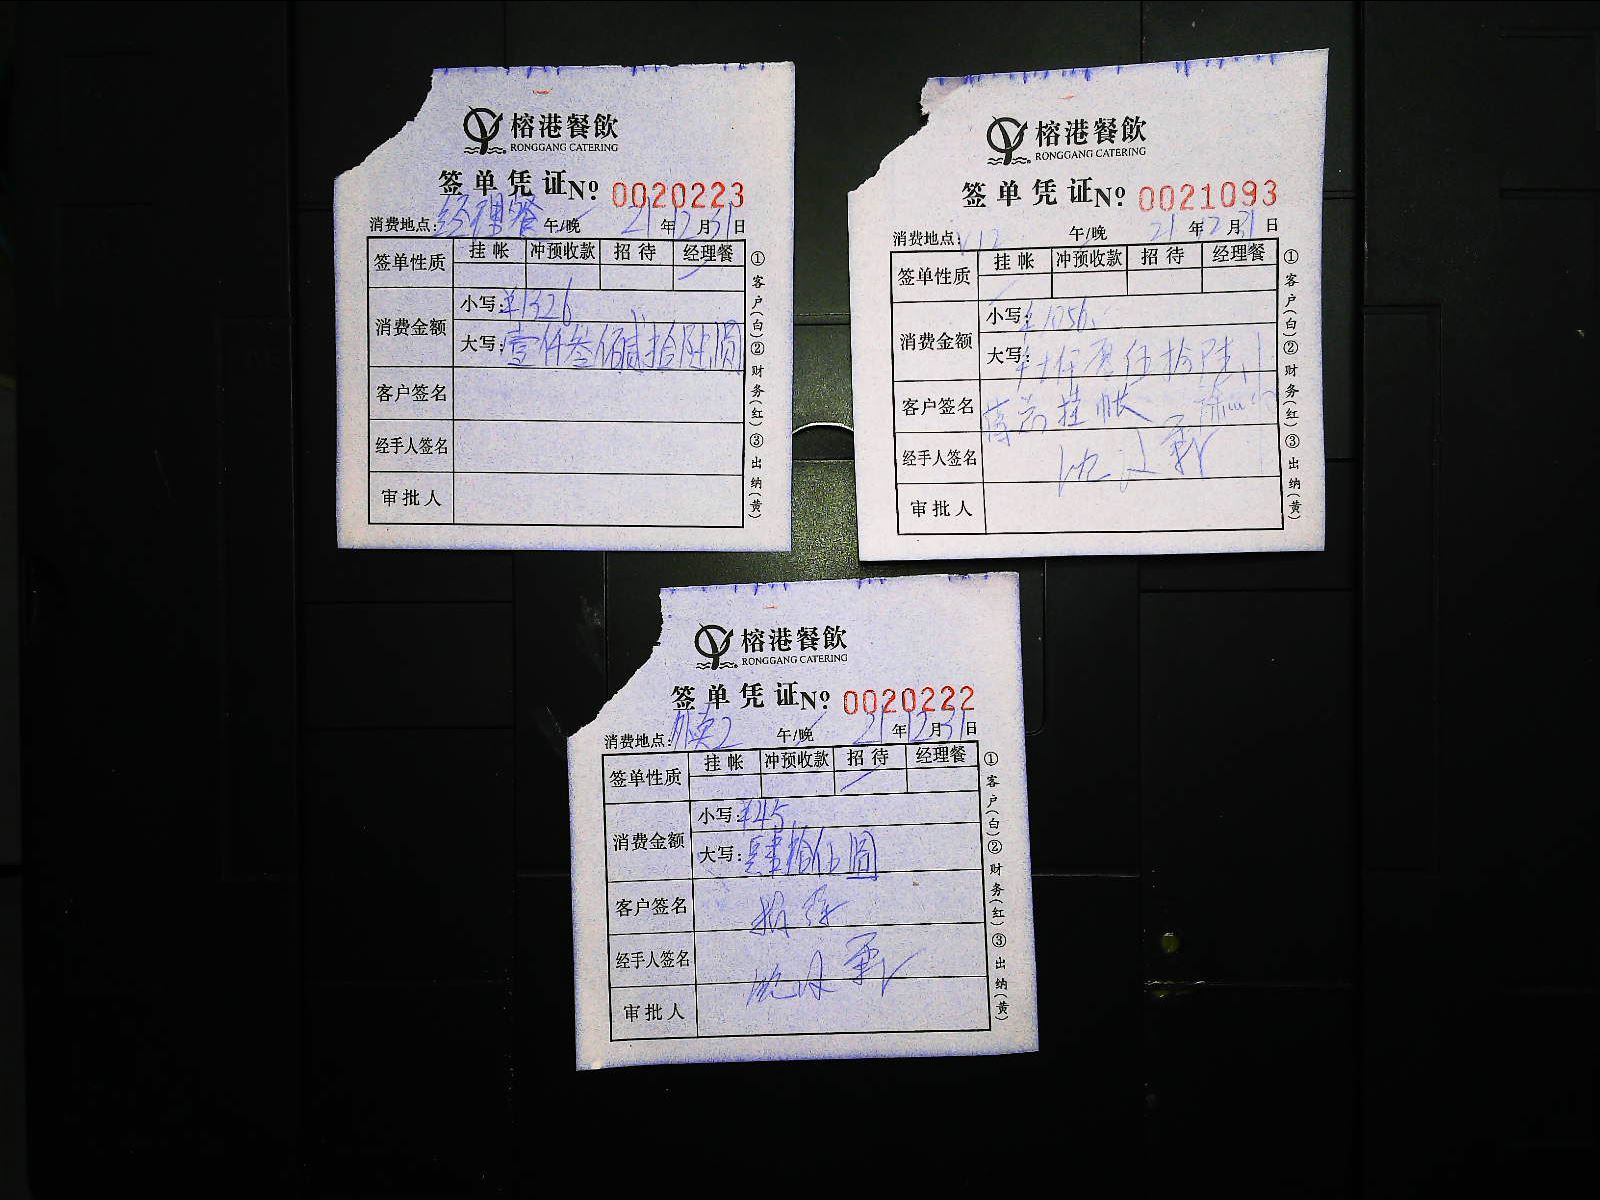 榕港餐飲
RONGGANG CATERING
签单凭证 Nº 0020223
消费地点: 经理餐 午/晚 21年12月31日
签单性质 挂帐 冲预收款 招待 经理餐
消费金额 小写: ¥1326
大写: 壹仟叁佰贰拾陆圆
客户签名
经手人签名
审批人
①客户(白)②财务(红)③出纳(黄)
榕港餐飲
RONGGANG CATERING
签单凭证 Nº 0021093
消费地点: V12 午/晚 21年12月31日
签单性质 挂帐 冲预收款 招待 经理餐
消费金额 小写: ¥1056.
大写: 仟零伍拾陆
客户签名 挂帐
经手人签名
审批人
①客户(白)②财务(红)③出纳(黄)
榕港餐飲
RONGGANG CATERING
签单凭证 Nº 0020222
消费地点: 外卖2 午/晚 21年12月31日
签单性质 挂帐 冲预收款 招待 经理餐
消费金额 小写: ¥45
大写: 肆拾伍圆
客户签名 招待
经手人签名
审批人
①客户(白)②财务(红)③出纳(黄)